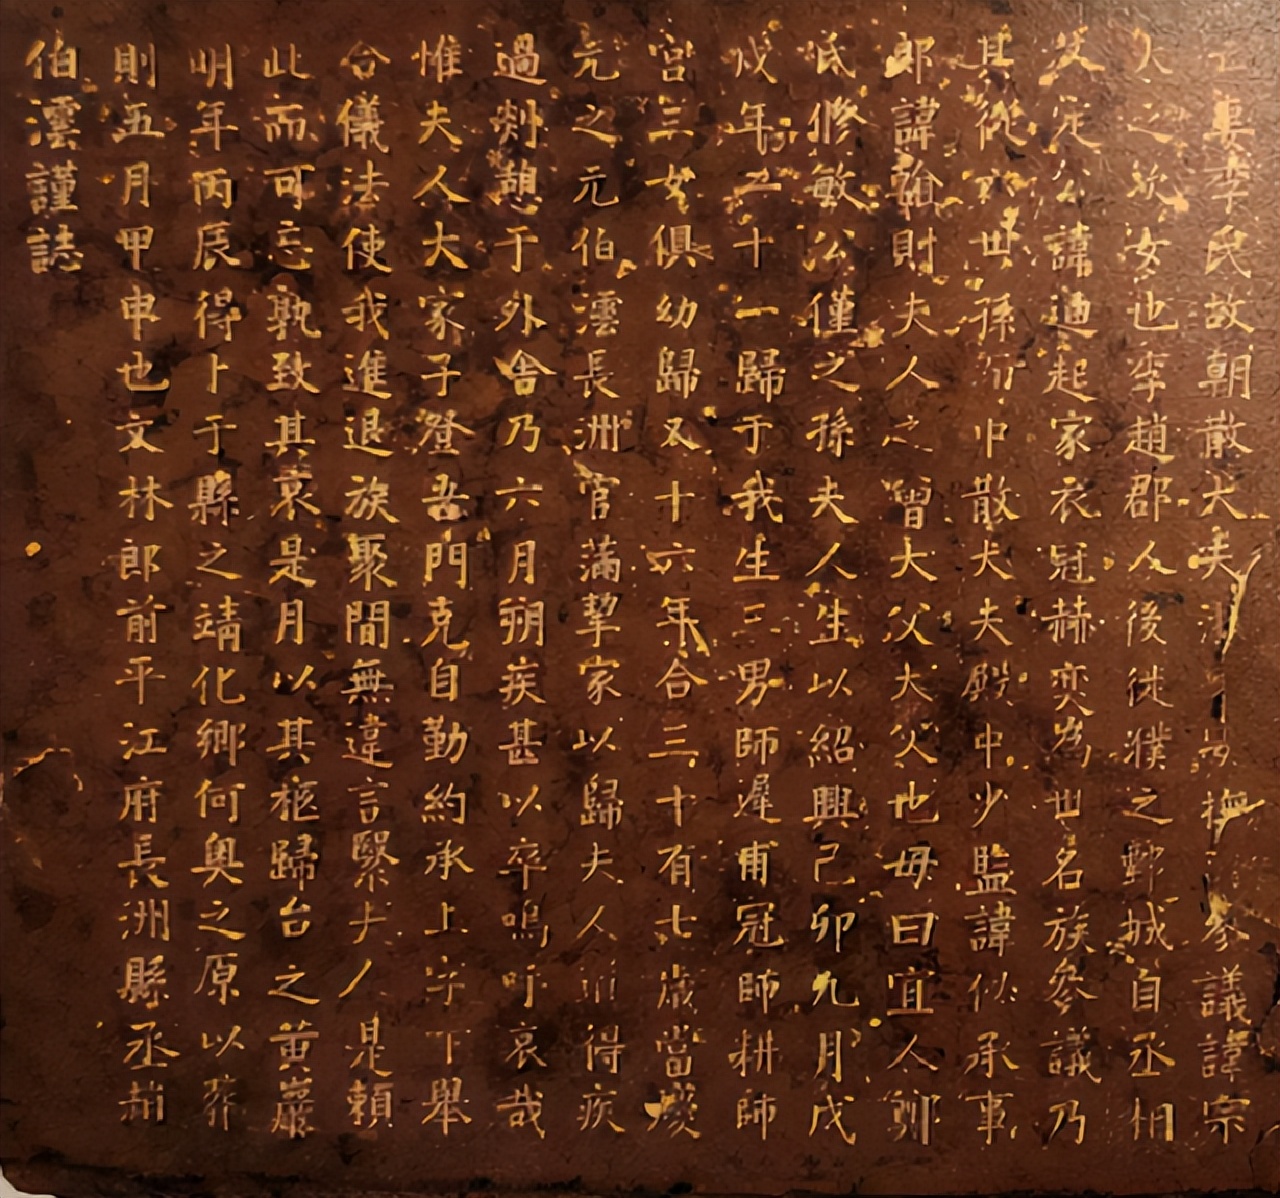 亡妻李氏故朝散大夫湖撫參議諱宗
之次女也李趙郡人後徙濮之鄄城自丞相
文定公諱迪起家衣冠赫奕為世名族參議乃
其從六世孫也中散大夫殿中少監諱似承事
郎諱翰則夫人之曾大父大父也母曰宜人鄭
氏修敏公僅之孫夫人生以紹興己卯九月戊
戌年二十一歸于我生三男師遲甫冠師耕師
宮三女俱幼歸又十六年合三十有七歲當癸
元之元伯澐長洲官滿挈家以歸夫人道得疾
過剡憩于外舍乃六月朔疾甚以卒嗚呼哀哉
惟夫人大家子澄吾門克自勤約承上字下舉
合儀法使我進退族聚間無違言緊夫人是賴
此而可忘孰致其哀是月以其柩歸台之黃巖
明年丙辰得卜于縣之靖化鄉何奧之原以葬
則五月甲申也文林郎前平江府長洲縣丞趙
伯澐謹誌